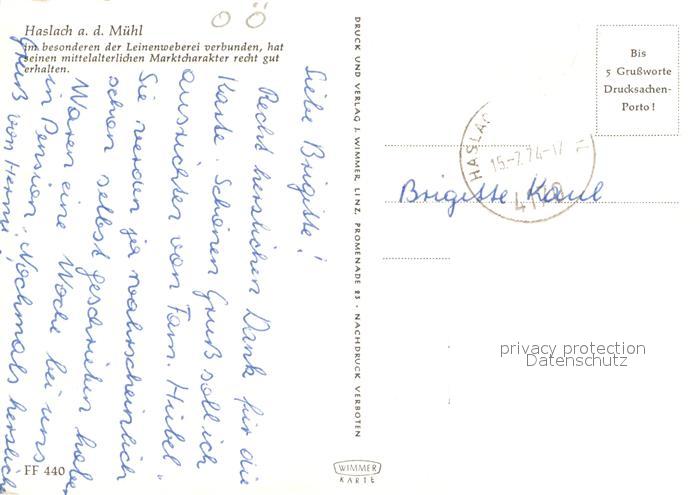 Ö Ö
Haslach a. d. Mühl
im besonderen der Leinenweberei verbunden, hat
seinen mittelalterlichen Marktcharakter recht gut
erhalten.
Liebe Brigitte!
Recht herzlichen Dank für die
Karte. Schönen Gruß soll ich
ausrichten von Fam. Hübel.
Sie werden ja wahrscheinlich
schon selbst geschrieben haben
Waren eine Woche bei uns
in Pension. Nochmals herzliche
Gruß von
FF 440
DRUCK UND VERLAG J. WIMMER, LINZ, PROMENADE 23 · NACHDRUCK VERBOTEN
WIMMER
KARTE
Bis
5 Grußworte
Drucksachen-
Porto!
HASLA
15.-7.74-17
Brigitte Kaul
privacy protection
Datenschutz